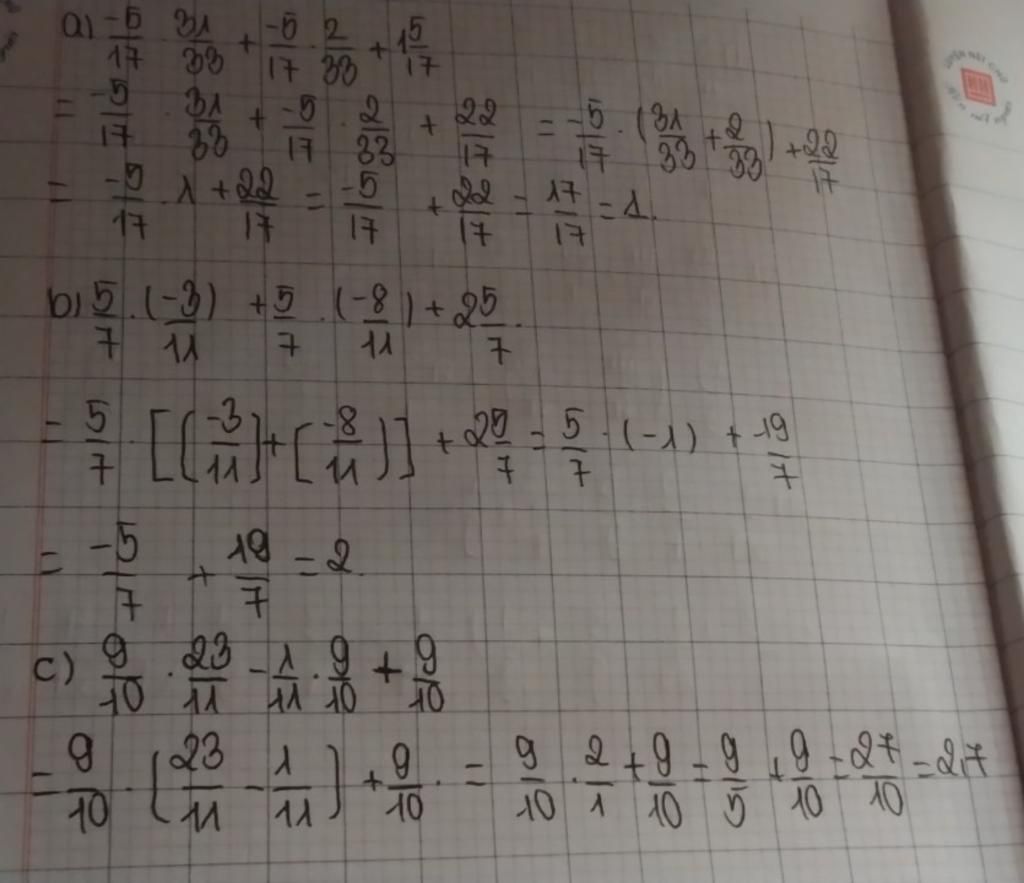 a) \frac{-5}{17} \cdot \frac{31}{33} + \frac{-5}{17} \cdot \frac{2}{33} + 1\frac{5}{17}
= \frac{-5}{17} \cdot \frac{31}{33} + \frac{-5}{17} \cdot \frac{2}{33} + \frac{22}{17} = \frac{-5}{17} \cdot (\frac{31}{33} + \frac{2}{33}) + \frac{22}{17}
= \frac{-5}{17} \cdot 1 + \frac{22}{17} = \frac{-5}{17} + \frac{22}{17} = \frac{17}{17} = 1.
b) \frac{5}{7} \cdot (\frac{-3}{11}) + \frac{5}{7} \cdot (\frac{-8}{11}) + 2\frac{5}{7}.
= \frac{5}{7} \cdot [(\frac{-3}{11}] + [\frac{-8}{11})] + 2\frac{5}{7} = \frac{5}{7} \cdot (-1) + \frac{19}{7}
= \frac{-5}{7} + \frac{19}{7} = 2.
c) \frac{9}{10} \cdot \frac{23}{11} - \frac{1}{11} \cdot \frac{9}{10} + \frac{9}{10}
= \frac{9}{10} \cdot (\frac{23}{11} - \frac{1}{11}) + \frac{9}{10} \cdot = \frac{9}{10} \cdot \frac{2}{1} + \frac{9}{10} = \frac{9}{5} + \frac{9}{10} = \frac{27}{10} = 2,7